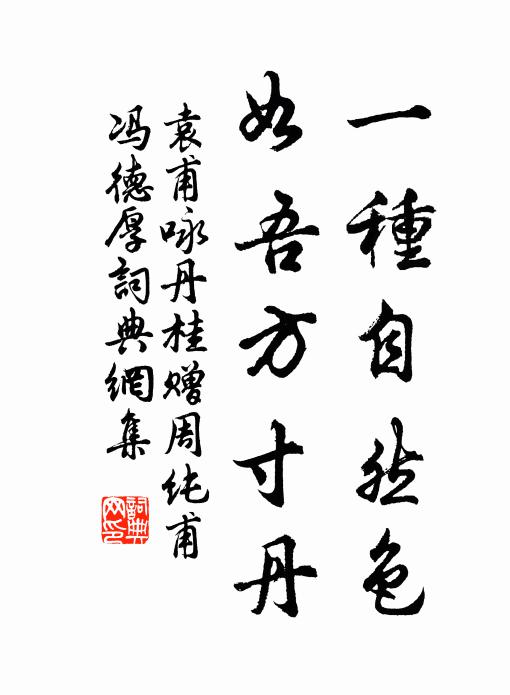 一種自然色
如吾方寸丹
袁甫咏丹桂赠周纯甫
冯德厚詞典網集
詞典網印